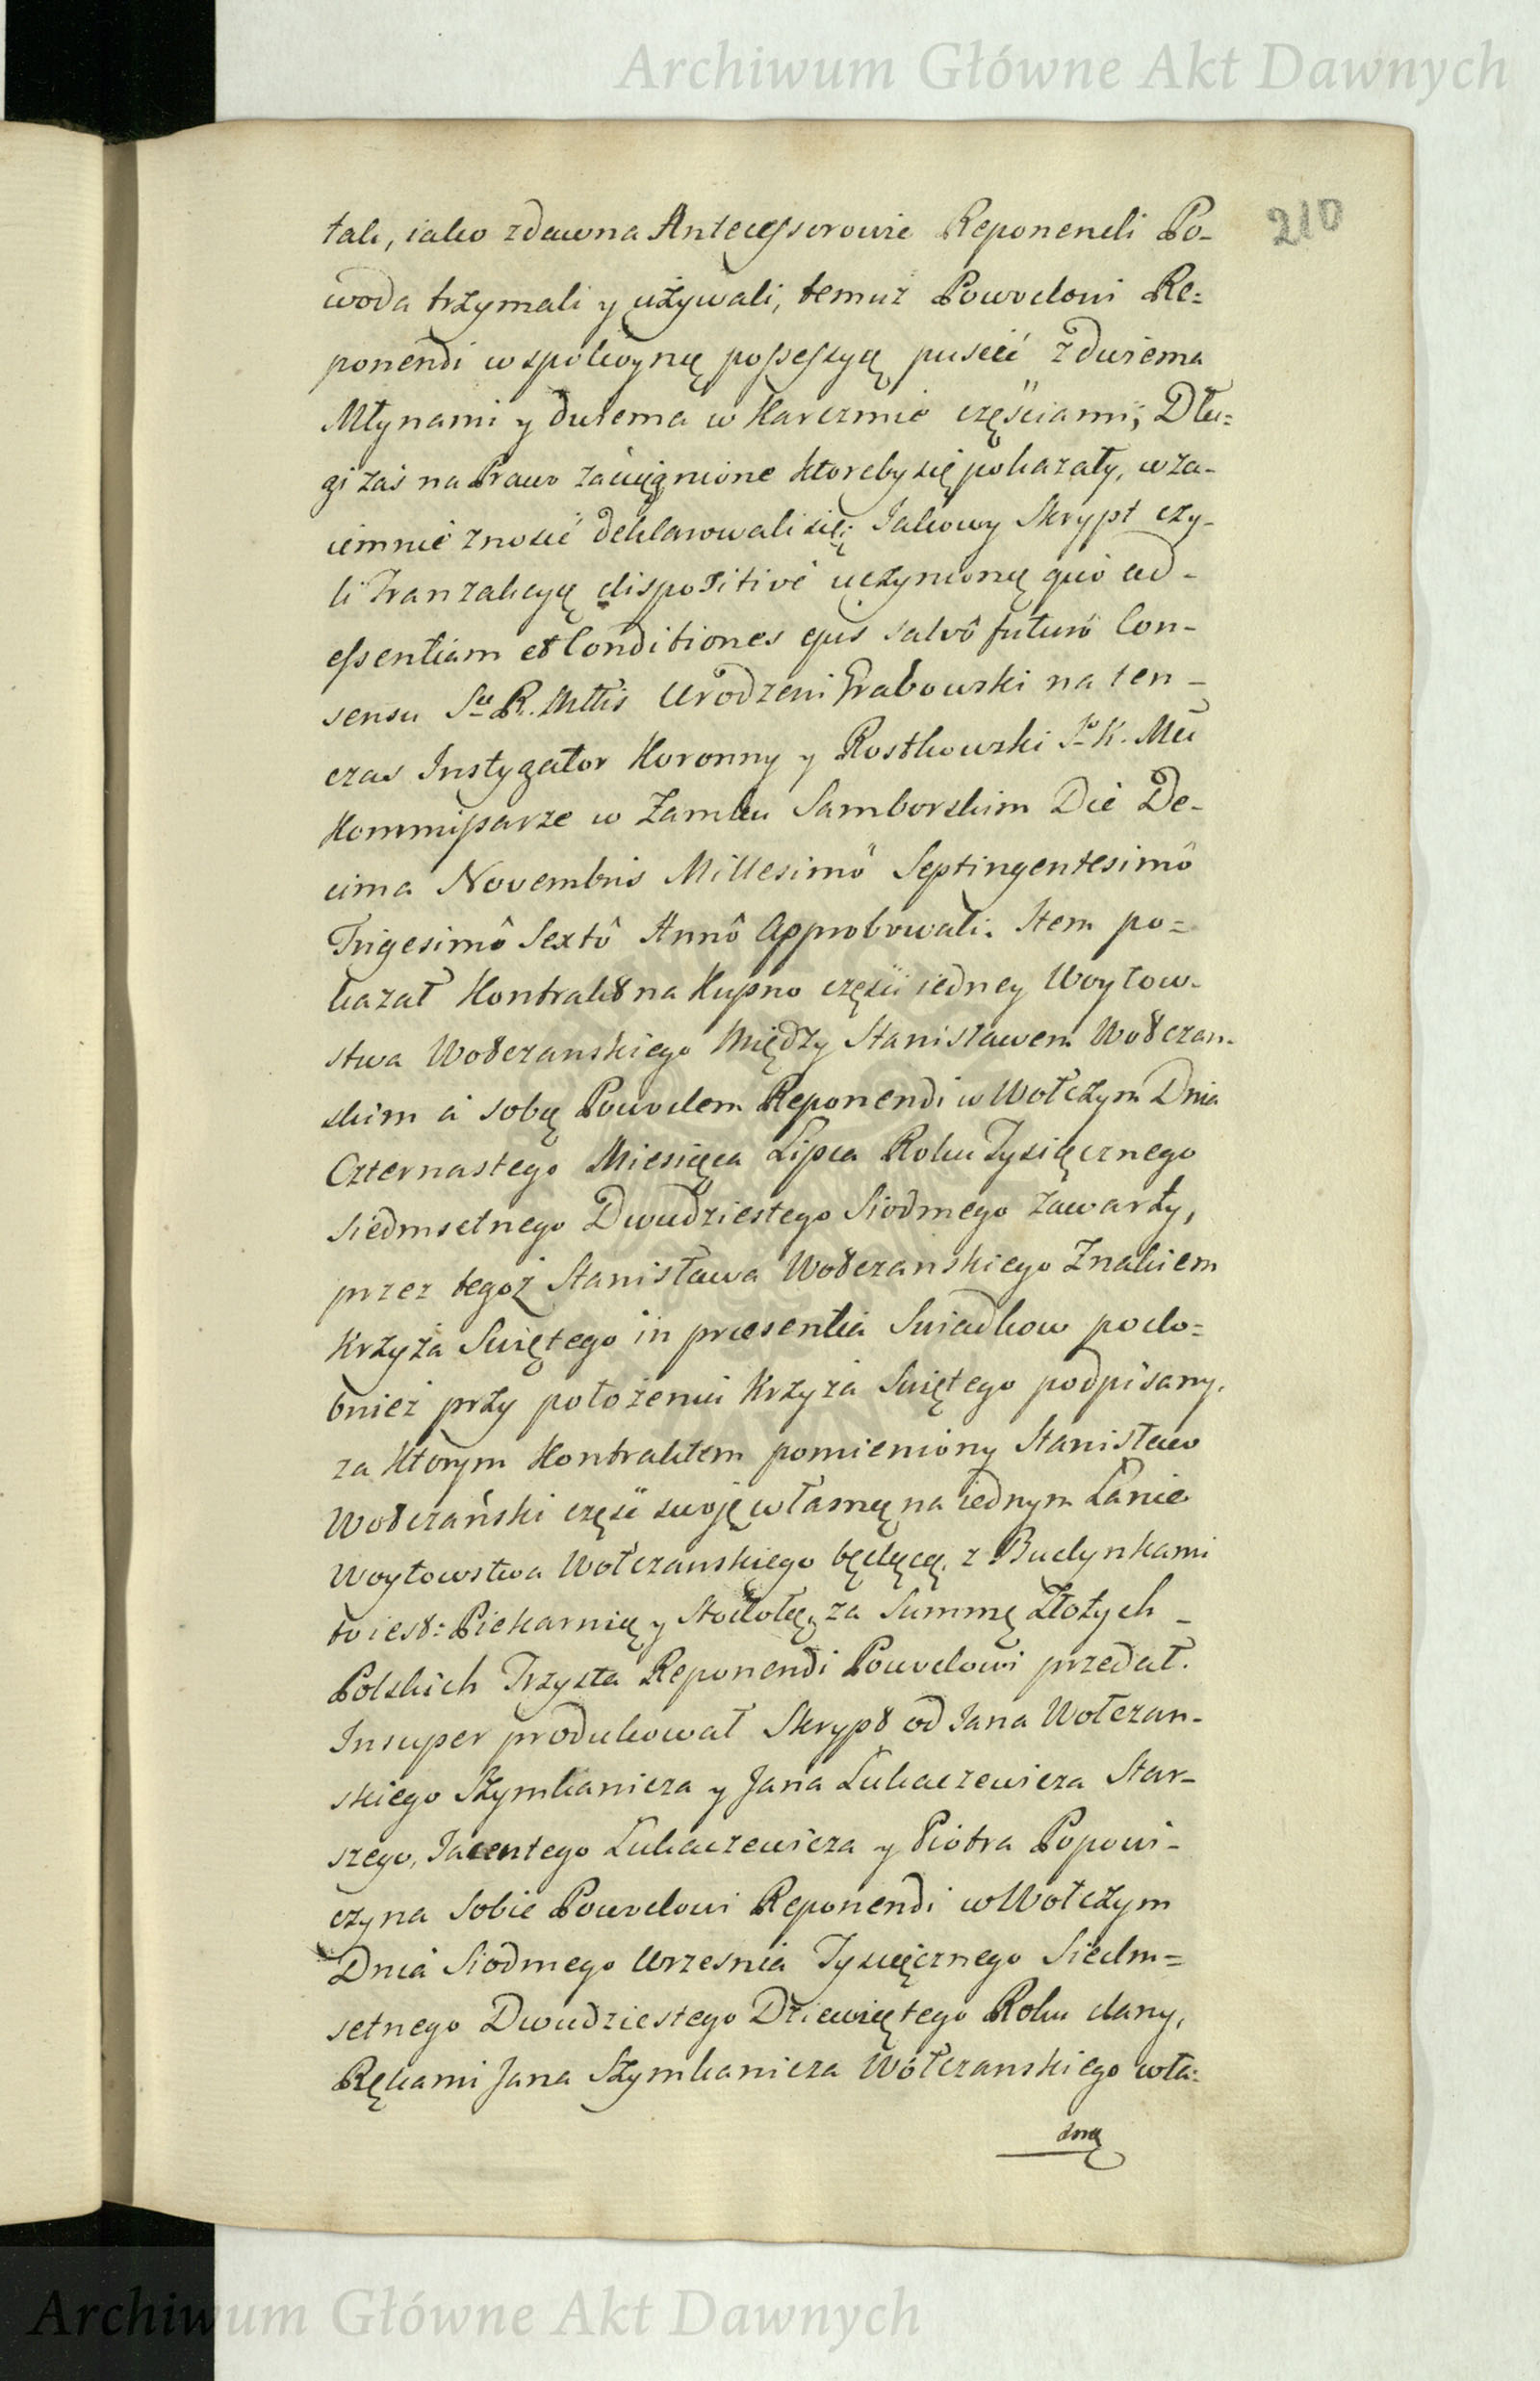 Archiwum Główne Akt Dawnych
210
tak, iako zdawna Antecessorowie Reponendi Po-
woda trzymali y używali, temuż Powodowi Re=
ponendi w spokoyną possessyą puscić z dwiema
Młynami y dwiema w Karczmie częściami; Dłu=
gi zaś na Prawo zaciągnione ktoreby się pokazały, wza-
iemnie znosić deklarowali się; Jakowy Skrypt czy-
li Tranzakcyą dispositive uczynioną quo ad-
essentiam et Conditiones ejus salvô futurô Con-
sensu Sae R. Mttis Urodzeni Grabowski na ten-
czas Instygator Koronny y Rostkowski Jo K. Mci
Kommissarze w Zamku Samborskim Die De-
cima Novembris Millesimô Septingentesimô
Trigesimô Sextô Annô Approbowali. Item po=
kazał Kontrakt na Kupno części iedney Woytow-
stwa Wołczanskiego Między Stanisławem Wołczan-
skim á sobą Powodem Reponendi w Wołczym Dnia
Czternastego Miesiąca Lipca Roku Tysiącznego
Siedmsetnego Dwudziestego Siodmego zawarty,
przez tegoż Stanisława Wołczanskiego Znakiem
Krzyża Swiętego in præsentia Swiadkow podo=
bnież przy położeniu Krzyża Swiętego podpisany,
za Ktorym Kontraktem pomieniony Stanisław
Wołczański częśc swoję własną na iednym Łanie
Woytowstwa Wołczanskiego będącą, z Budynkami
to iest: Piekarnią y Stodołą, za Summę Złotych -
Polskich Trzysta Reponendi Powodowi przedał.
Insuper produkował Skrypt od Jana Wołczan-
skiego Szymkanicza y Jana Łukaczewicza Star-
szego, Jacentego Łukaczewicza y Piotra Popowi-
czyna Sobie Powodowi Reponendi w Wołczym
Dnia Siodmego Wrzesnia Tysiącznego Siedm=
setnego Dwudziestego Dziewiątego Roku dany,
Rękami Jana Szymkanicza Wołczanskiego wła=
sną
Archiwum Główne Akt Dawnych